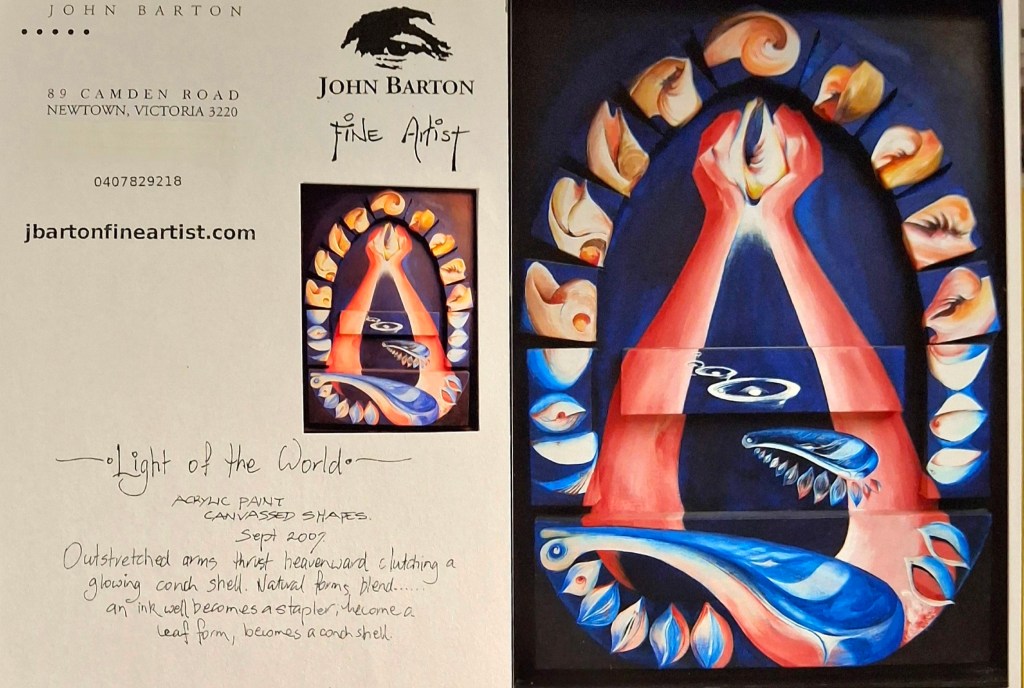 JOHN BARTON
89 CAMDEN ROAD
NEWTOWN, VICTORIA 3220
0407829218
jbartonfineartist.com
JOHN BARTON
Fine Artist
Light of the World
ACRYLIC PAINT
CANVASSED SHAPES.
Sept 2007
Outstretched arms thrust heavenward clutching a
glowing conch shell. Natural forms blend......
an ink well becomes a stapler, become a
leaf form, becomes a conch shell.